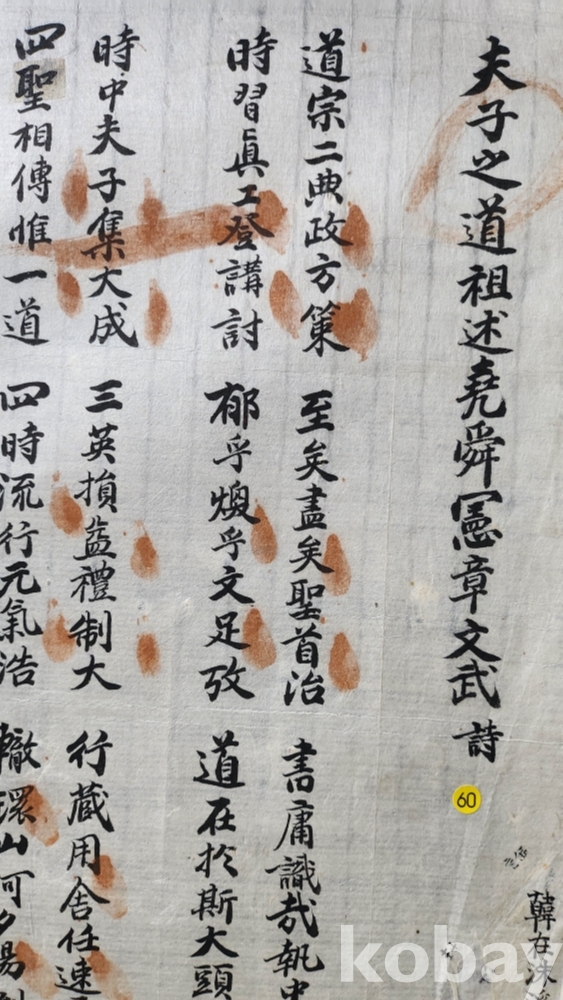 夫子之道祖述堯舜憲章文武 詩
60
韓在洙
道宗二典政方策 至矣盡矣聖首治 書庸識哉執中
時習眞工登講討 郁乎煥乎文足攷 道在於斯大頭
時中夫子集大成 三英損益禮制大 行蔵用舍任速
四聖相傳惟一道 四時流行元氣浩 轍澴山河夕陽
kobay